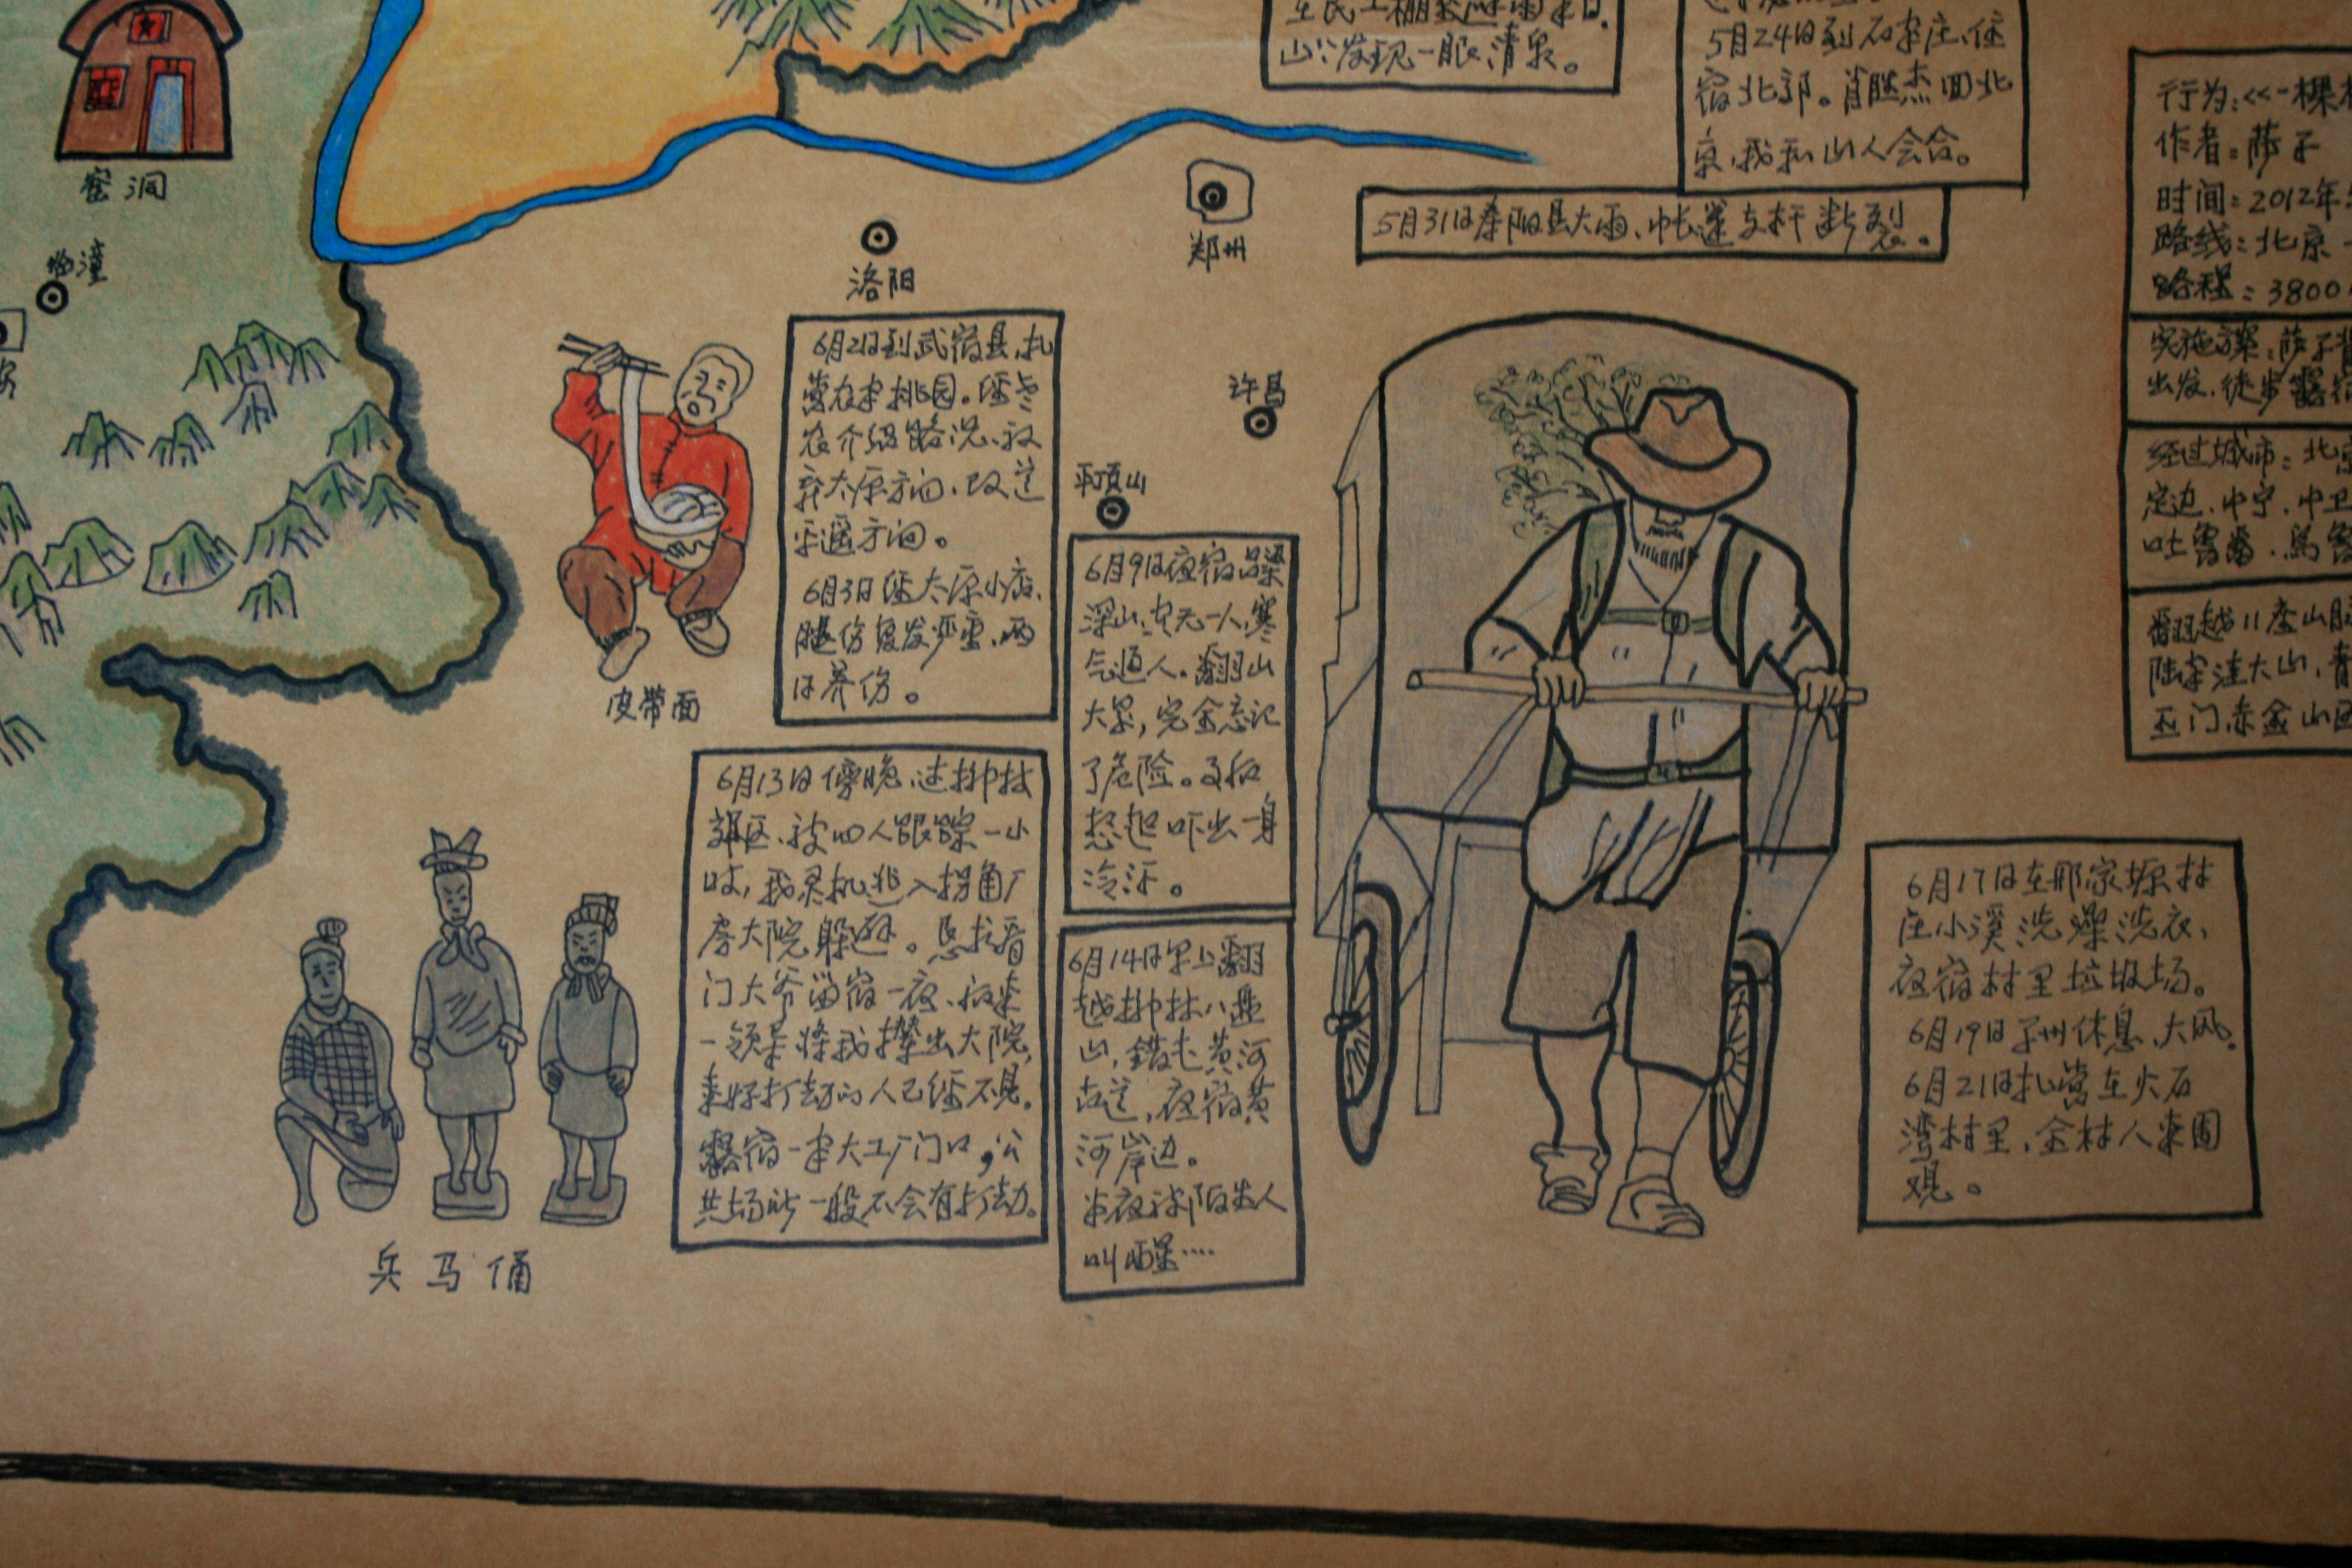 山发现一眼清泉。
5月24日到石家庄,住
宿北郊。肖胜杰回北
京,我和山人会合。
5月31日寿阳县大雨、帐篷支杆断裂。
行为:<<一棵
作者:萨子
时间:2012年
路线:北京
路程:3800
实施方案:萨子
出发、徒步露宿
经过城市:北京
定边、中宁、中卫
吐鲁番、乌鲁
翻越11座山脉
陆家洼大山,青
玉门、赤金山
窑洞
临潼
洛阳
郑州
许昌
平顶山
皮带面
兵马俑
6月2日到武宿县,扎
营农家桃园。经老
农介绍路况、放
弃太原方向、改道
平遥方向。
6月3日经太原小店、
腿伤复发严重、两
日养伤。
6月9日夜宿吕梁
深山,空无一人,寒
气逼人。翻山
大累,完全忘记
了危险。事后
想起吓出一身
冷汗。
6月13日傍晚、过柳林
郊区、被四人跟踪一小
时,我灵机逃入拐角厂
房大院躲避。恳求看
门大爷留宿一夜、后来
一领导将我撵出大院,
幸好打劫的人已经不见。
露宿一家大工厂门口,公
共场所一般不会有打劫。
6月14日早上翻
越柳林八盘
山,错走黄河
古道,夜宿黄
河岸边。
半夜被陌生人
叫醒····
6月17日在邢家塬村
庄小溪洗澡洗衣、
夜宿村里垃圾场。
6月19日子州休息、大风。
6月21日扎营在火石
湾村里,全村人来围
观。